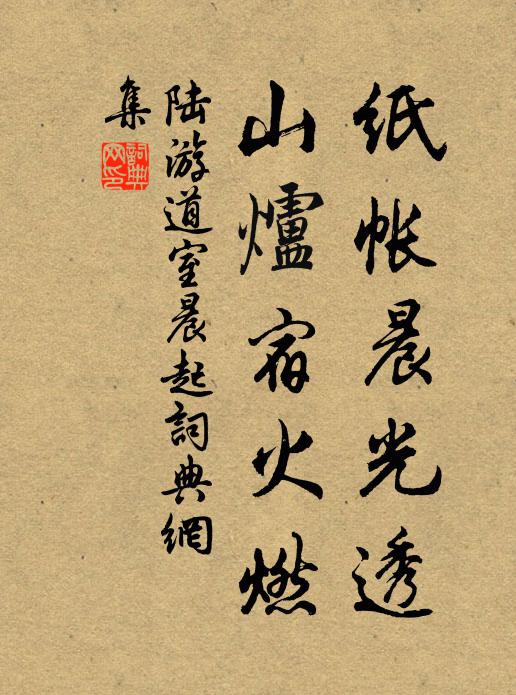 紙帐晨光透
山爐宿火燃
陆游道室晨起詞典網
集
詞典网印